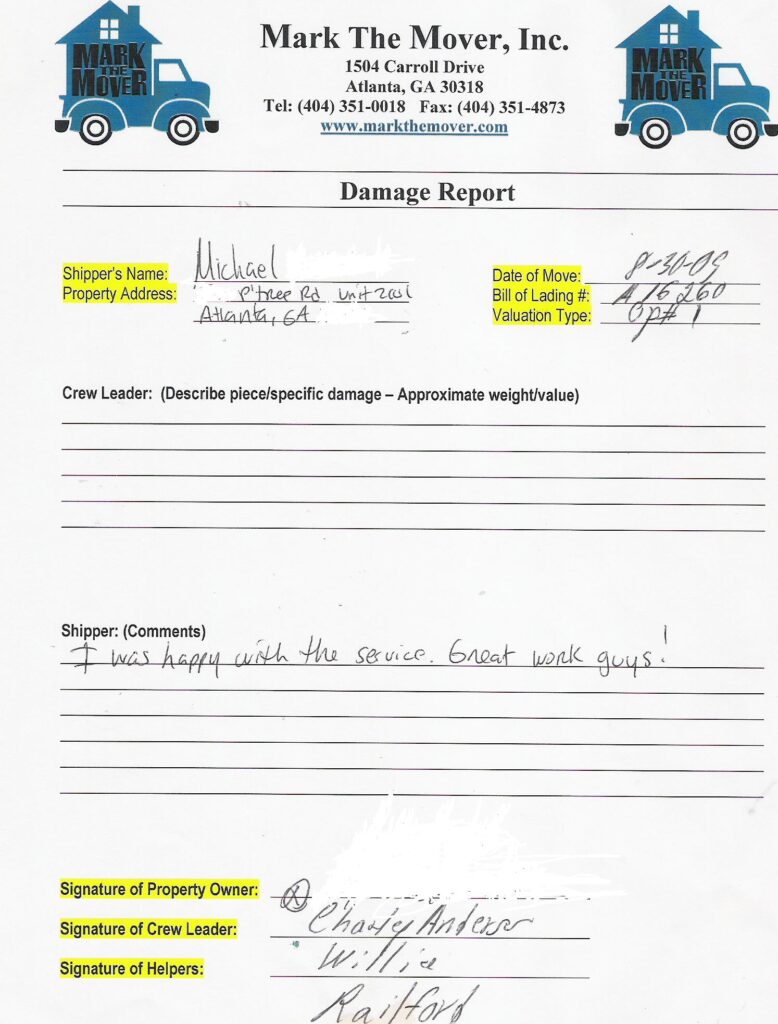 MARK THE MOVER
Mark The Mover, Inc.
MARK THE MOVER
1504 Carroll Drive
Atlanta, GA 30318
Tel: (404) 351-0018 Fax: (404) 351-4873
www.markthemover.com
Damage Report
Shipper's Name: Michael
Date of Move: 8-30-05
Property Address: P'tree Rd unit 2001
Bill of Lading #: A 16260
Atlanta, GA
Valuation Type: Op# 1
Crew Leader: (Describe piece/specific damage – Approximate weight/value)
Shipper: (Comments)
I was happy with the service. Great work guys!
Signature of Property Owner: X
Signature of Crew Leader: Charley Anderson
Signature of Helpers: Willie
Railford